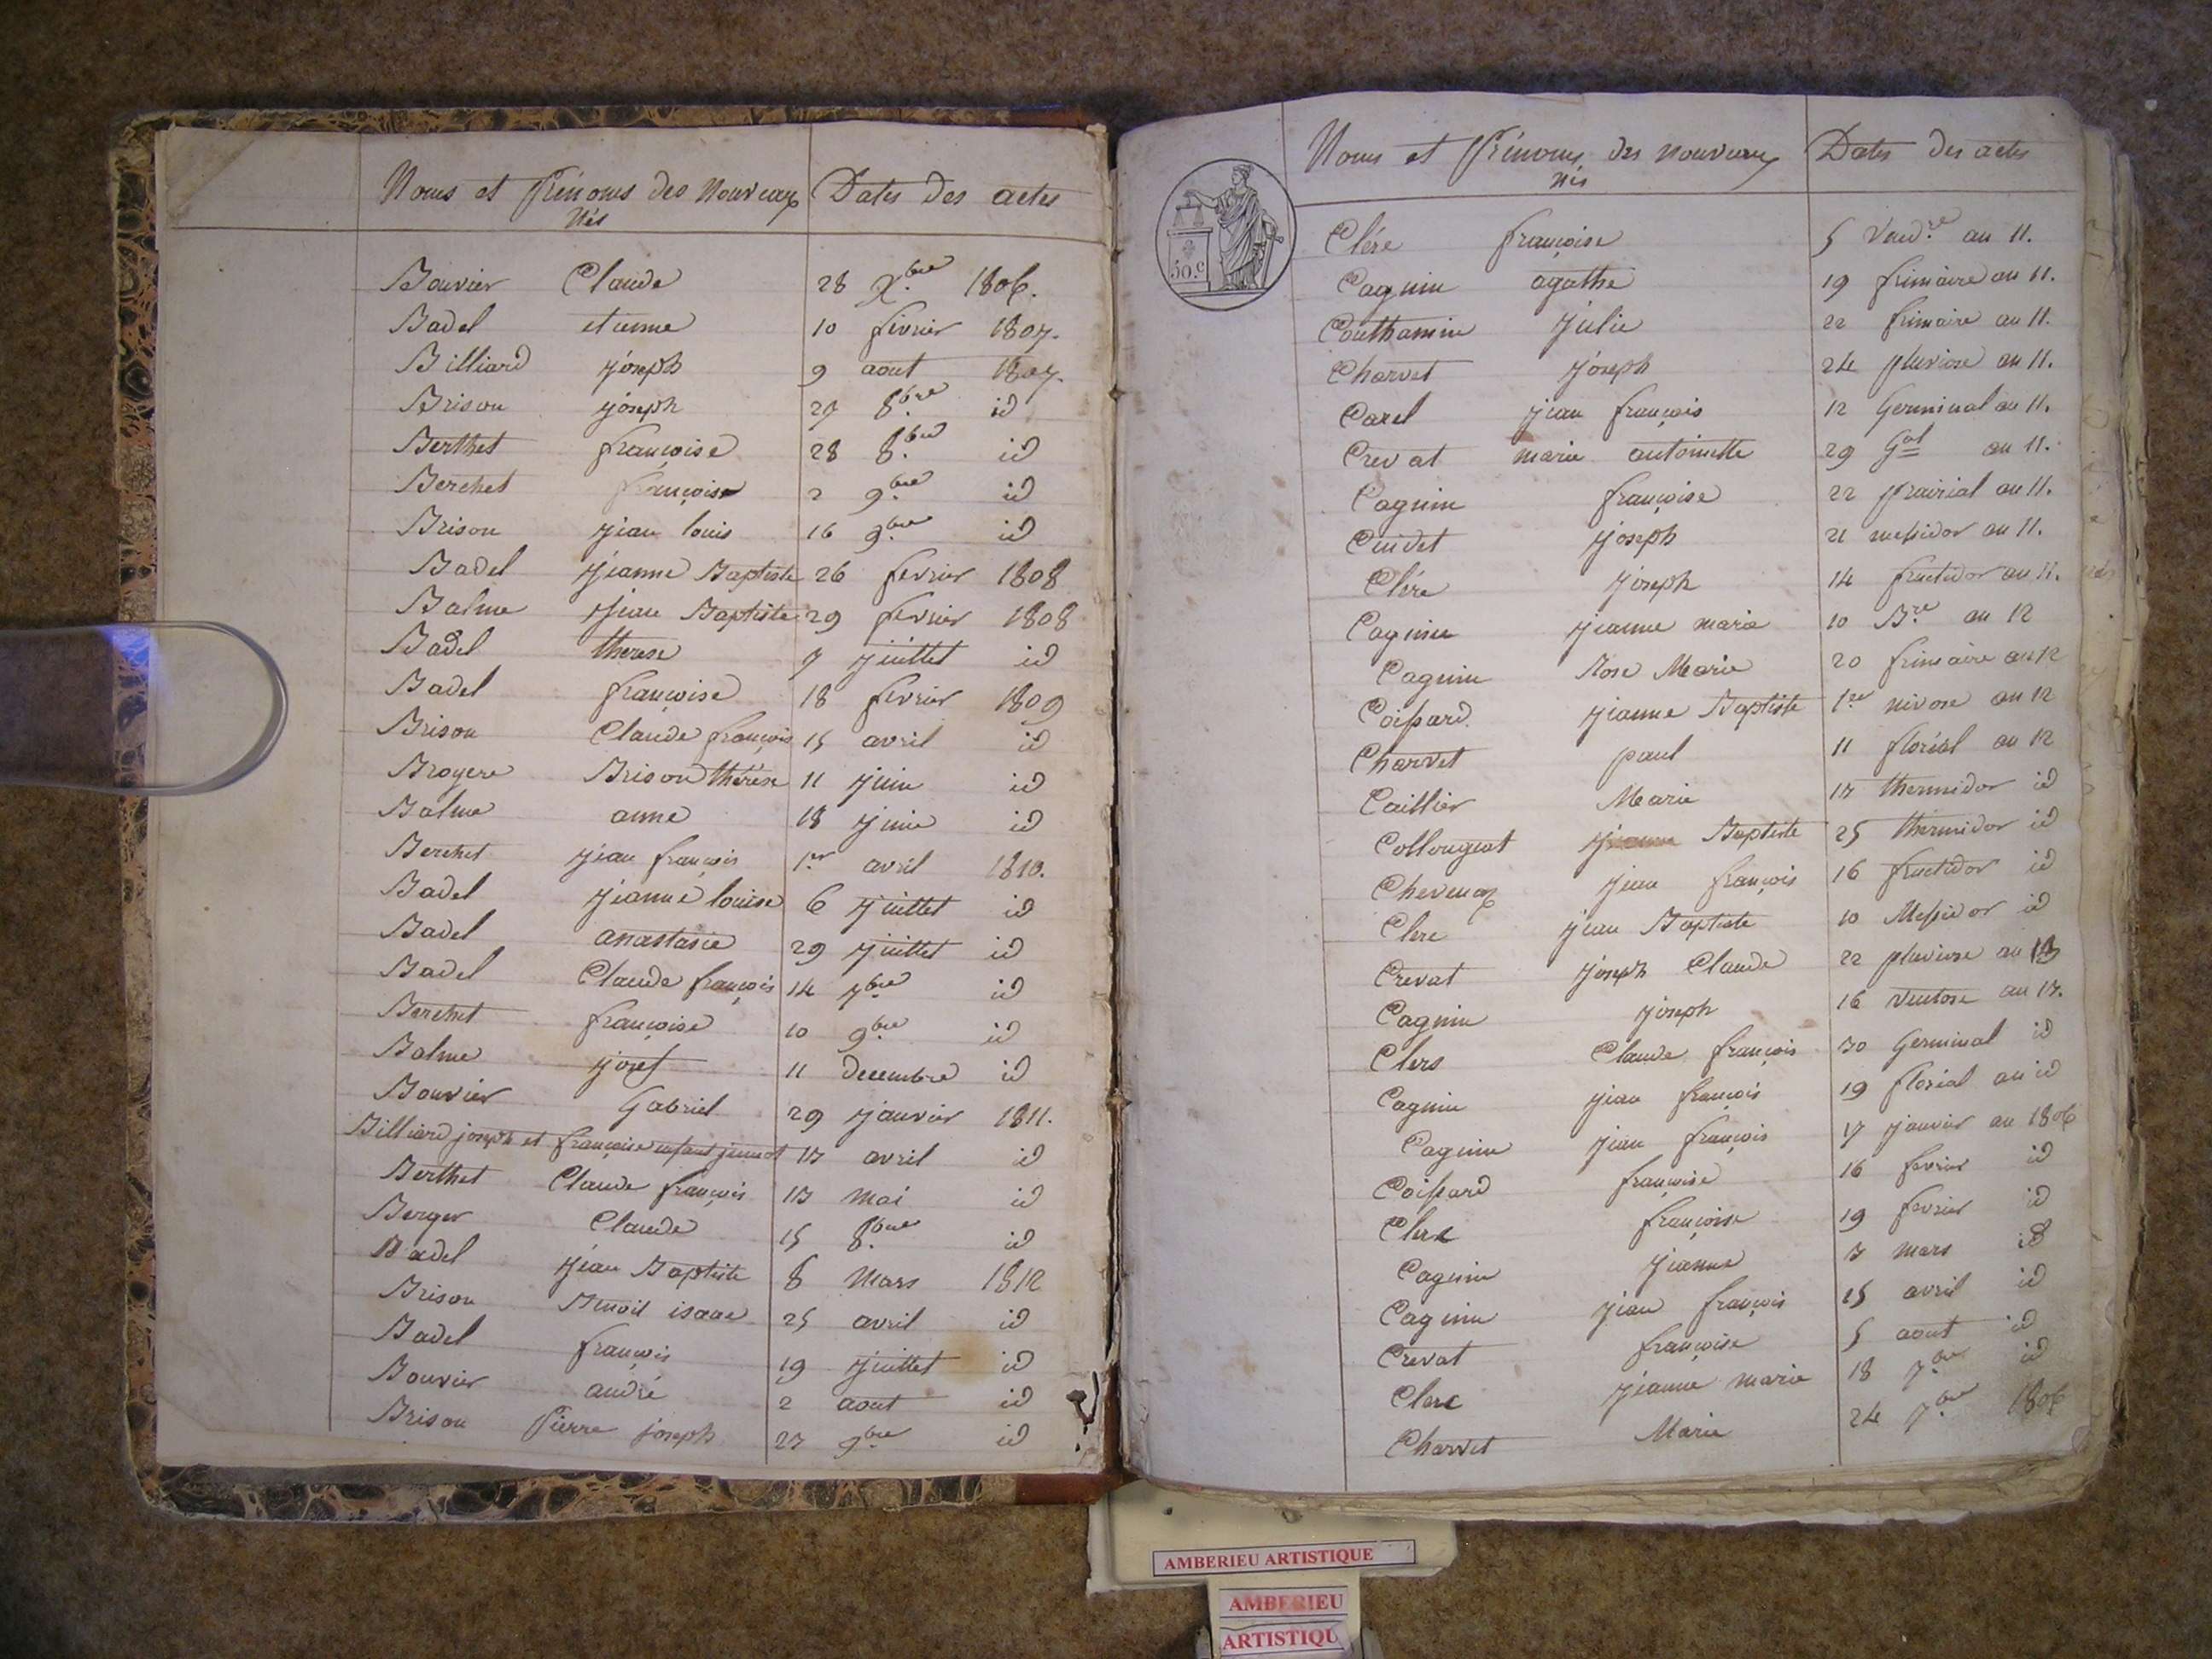 Noms et Prénoms des Nouveaux Nés Dates des actes
Bouvier Claude 28 X.bre 1806.
Badel etienne 10 fevrier 1807.
Billiard joseph 9 aout 1807.
Brison joseph 27 8.bre id
Berthet françoise 28 8.bre id
Berchet françoise 2 9.bre id
Brison jean louis 16 9.bre id
Badel jeanne Baptiste 26 fevrier 1808
Balme jean Baptiste 29 fevrier 1808
Badel therese 7 juillet id
Badel françoise 18 fevrier 1809
Brison Claude françois 15 avril id
Broyere Brison thérèse 11 juin id
Balme anne 18 juin id
Berchet jean françois 1.er avril 1810.
Badel jeanne louise 6 juillet id
Badel anastasie 29 juillet id
Badel Claude françois 14 7bre id
Berchet françoise 10 9.bre id
Balme josef 11 decembre id
Bouvier Gabriel 29 janvier 1811.
Billiard joseph et françoise enfant 13 avril id
Berthet Claude françois 13 mai id
Berger Claude 15 8.bre id
Badel jean Baptiste 8 Mars 1812
Brison Benoit isaac 25 avril id
Badel françois 19 juillet id
Bouvier andré 2 aout id
Brison Pierre joseph 23 9.bre id
Noms et Prénoms des nouveaux nés Dates des actes
50.c
Clére françoise 5 Vend.re an 11.
Cagnin agathe 19 frimaire an 11.
Couthamin julie 22 frimaire an 11.
Charvet joseph 24 pluviose an 11.
Carel jean françois 12 Germinal an 11.
Crevat marie antoinette 29 Gal an 11.
Cagnin françoise 22 prairial an 11.
Cuidet joseph 21 messidor an 11.
Clére joseph 14 fructidor an 11.
Cagnin jeanne marie 10 B.re an 12
Cagnin Rose Marie 20 frimaire an 12
Coissard. jeanne Baptiste 1.er nivose an 12
Charvet paul 11 floréal an 12
Caillier Marie 13 thermidor id
Collougeat Baptiste 25 thermidor id
Chevenoz jean françois 16 fructidor id
Clerc jean Baptiste 10 Messidor id
Crevat joseph Claude 22 pluviose an 13
Cagnin joseph 16 Ventose an 13.
Clers Claude françois 30 Germinal id
Cagnin jean françois 19 floréal an id
Cagnin jean françois 17 janvier an 1806
Coissard françoise 16 fevrier id
Clerc françoise 19 fevrier id
Cagnin jeanne 3 mars id
Cagnin jean françois 15 avril id
Crevat françoise 5 aout id
Clerc jeanne marie 18 7.bre id
Charvet Marie 24 7.bre 1806
AMBERIEU ARTISTIQUE
AMBERIEU
ARTISTIQU